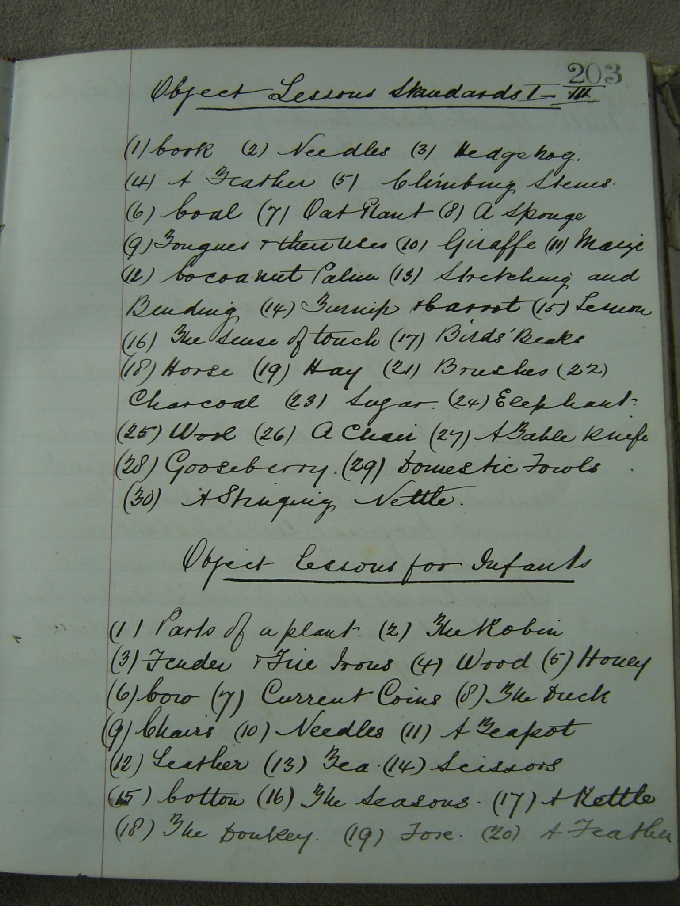 203
Object Lessons Standards I - III.
(1) Cork (2) Needles (3) Hedgehog.
(4) A Feather (5) Climbing Stems.
(6) Coal (7) Oat Plant (8) A Sponge
(9) Tongues & their uses (10) Giraffe (11) Maize
(12) Cocoanut Palm (13) Stretching and
Bending (14) Turnip & Carrot (15) Lemon
(16) The Sense of touch (17) Birds' Beaks
(18) Horse (19) Hay (21) Brushes (22)
Charcoal (23) Sugar. (24) Elephant.
(25) Wool (26) A Chair (27) A Table Knife
(28) Gooseberry. (29) Domestic Fowls
(30) A Stinging Nettle.
Object Lessons for Infants
(1) Parts of a plant. (2) The Robin
(3) Fender & Fire Irons (4) Wood (5) Honey
(6) Cow (7) Current Coins (8) The Duck
(9) Chairs (10) Needles (11) A Teapot
(12) Leather (13) Tea. (14) Scissors
(15) Cotton (16) The Seasons. (17) A Kettle
(18) The Donkey. (19) (20) A Feather